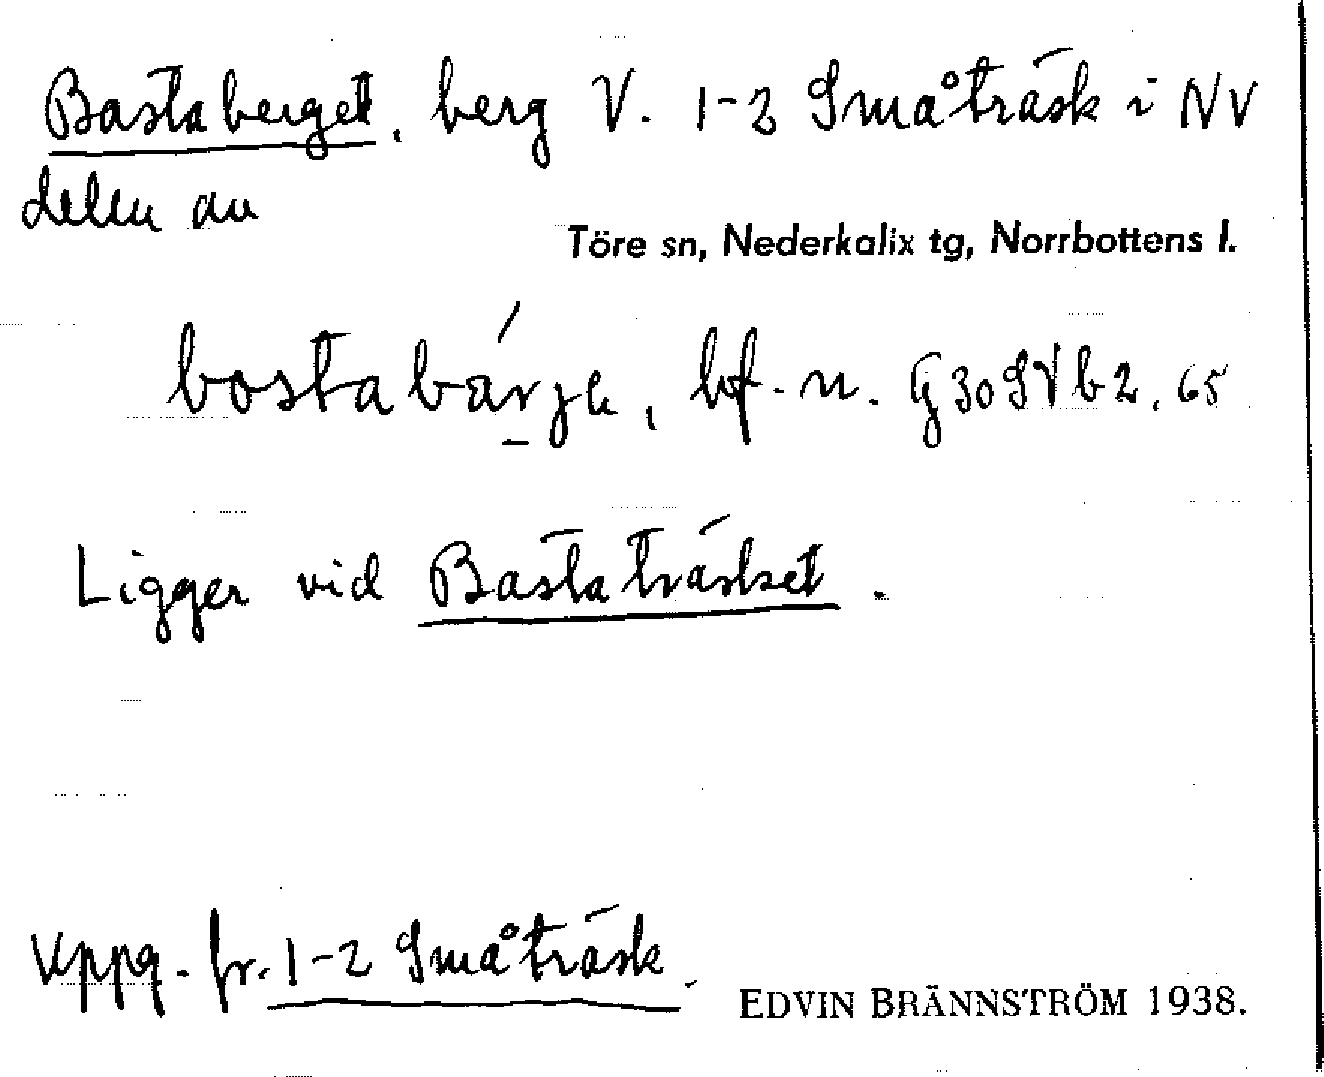 Bastaberget, berg V. 1-2 Småträsk i NV
delen av
Töre sn, Nederkalix tg, Norrbottens l.
bf. n. G30SVb2.65
Ligger vid Bastaträsket.
Uppg. fr. 1-2 Småträsk.
EDVIN BRÄNNSTRÖM 1938.